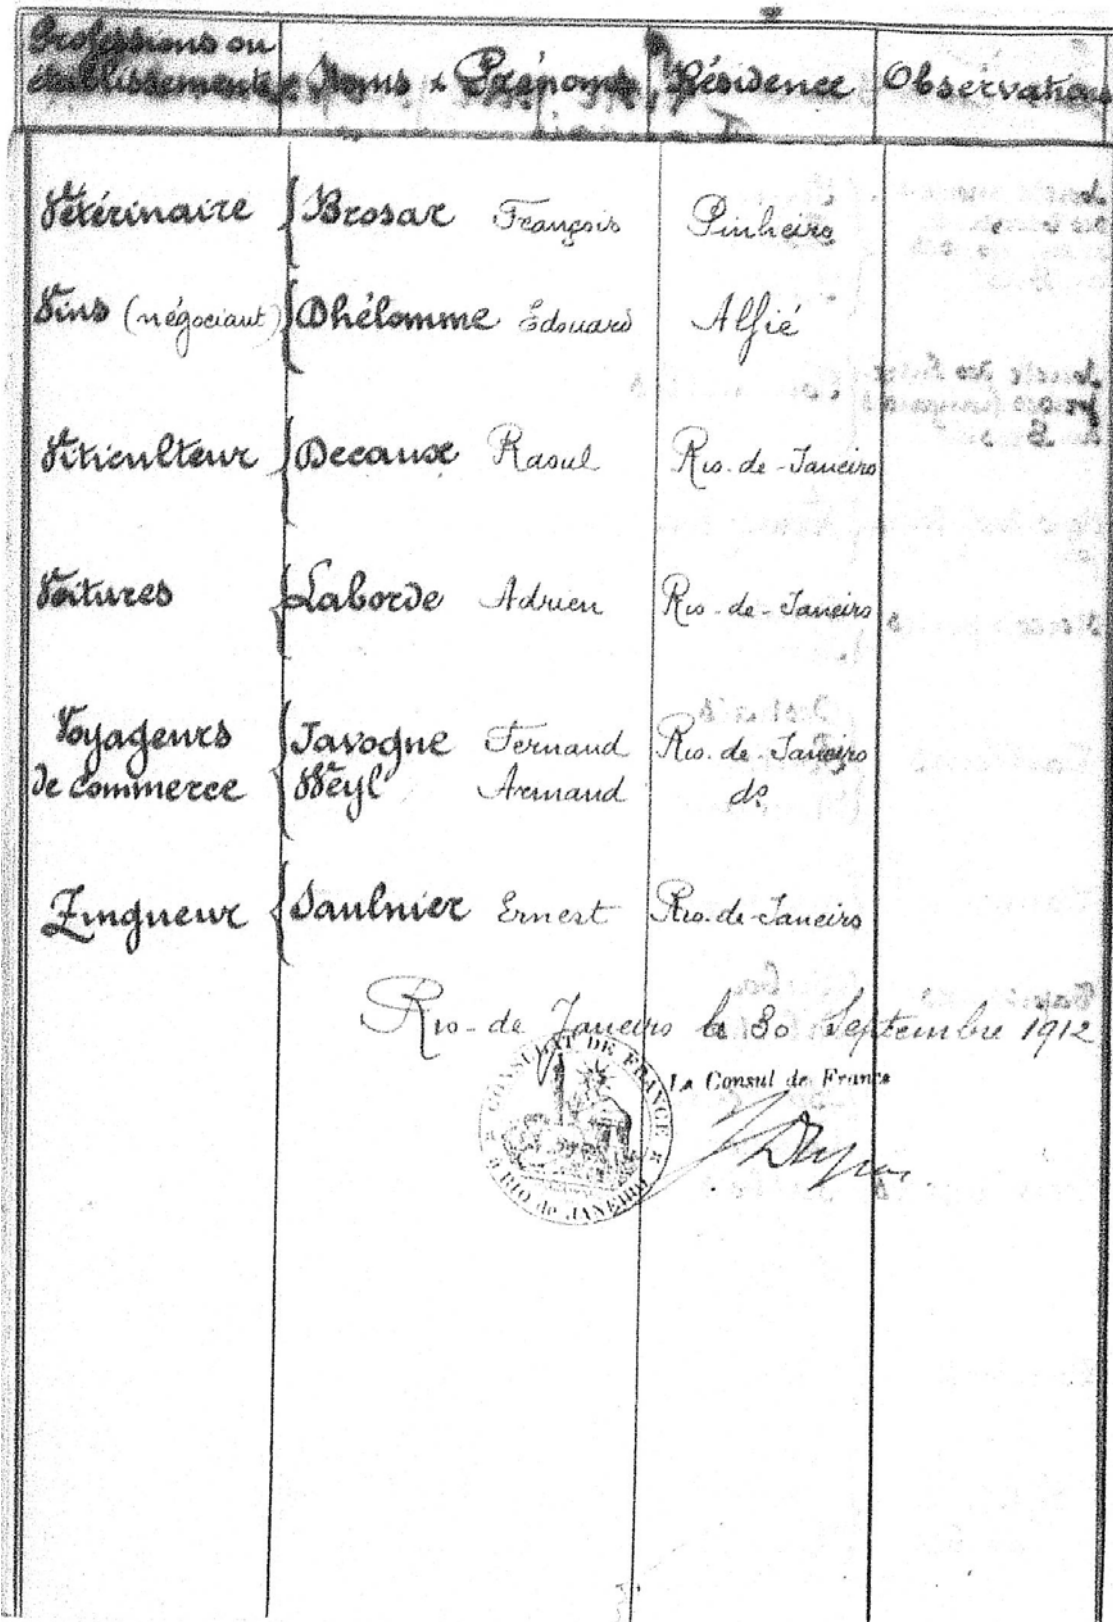 Professions ou
établissements Noms & Prénoms Résidence Observations
Vétérinaire Brosar François Pinheiro
Vins (négociant) Dhélomme Edouard Alfié
Viticulteur Decaux Raoul Rio-de-Janeiro
Voitures Laborde Adrien Rio-de-Janeiro
Voyageurs Javogne Fernand Rio-de-Janeiro
de commerce Weyl Armand do
Zingueur Saulnier Ernest Rio-de-Janeiro
Rio-de Janeiro le 30 Septembre 1912
Le Consul de France
CONSULAT DE FRANCE
à RIO de JANEIRO